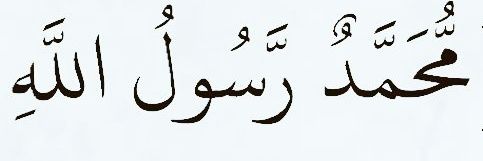 مُّحَمَّدٌ رَّسُولُ اللَّهِ